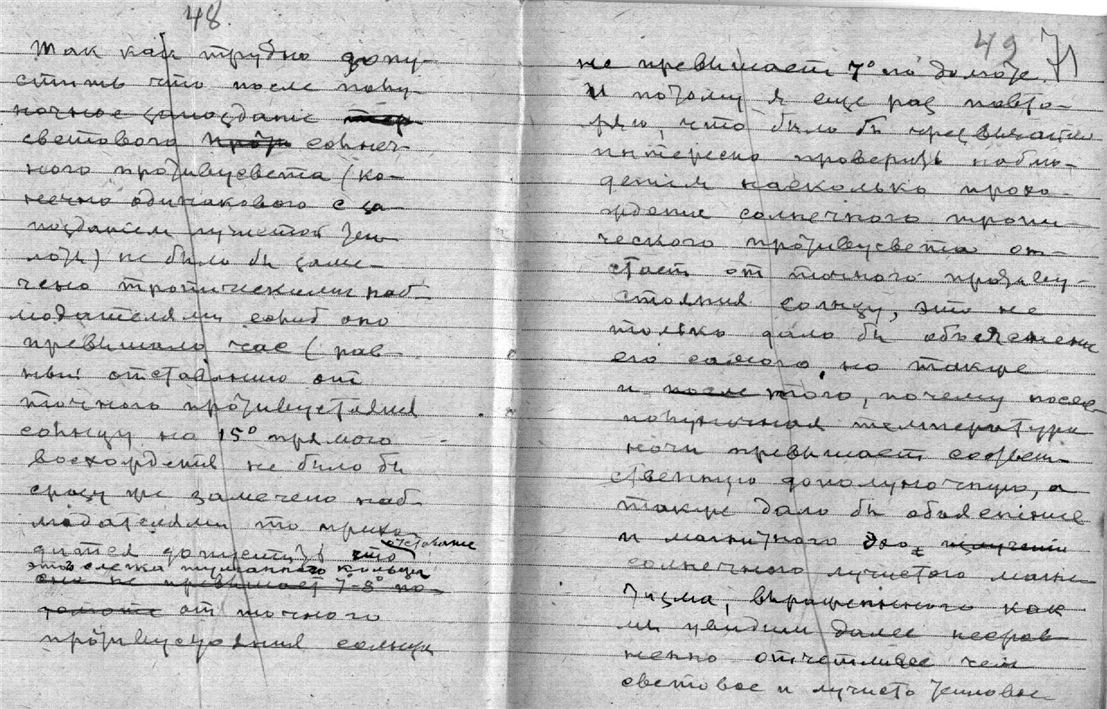 48.
Так как трудно допу-
стить что после полу-
ночное запоздание
светового солнеч-
ного противусвета (ко-
нечно одинакового с за-
позданием лучистой теп-
лоты) не было бы заме-
чено тропическими наб-
людателями если б оно
превышало час (рав-
ный отставанию от
точного противустояния
солнцу на 15° прямого
восхождения не было бы
сразу же замечено наб-
людателями то прихо-
дится допустить что отставание
этого слежка туманного кольца
оно не превышает 7°-8° по
от точного
противустояния солнцу
49 71
не превышает 7° по долготе.
И потому я еще раз повто-
ряю, что было бы чрезвычайно
интересно проверить наблю-
дения насколько прохо-
ждение солнечного тропи-
ческого противусвета от-
стает от точного противу-
стояния солнцу, это не
только дало бы объяснение
его самого, но также
и после того, почему после-
полуночная температура
ночи превышает соответ-
ственную дополуночную, а
также дало бы объяснение
и магнитного эхо излучения
солнечного лучистого магне-
тизма, выраженного как
мы увидим далее несрав-
ненно отчетливее чем
световое и лучисто тепловое